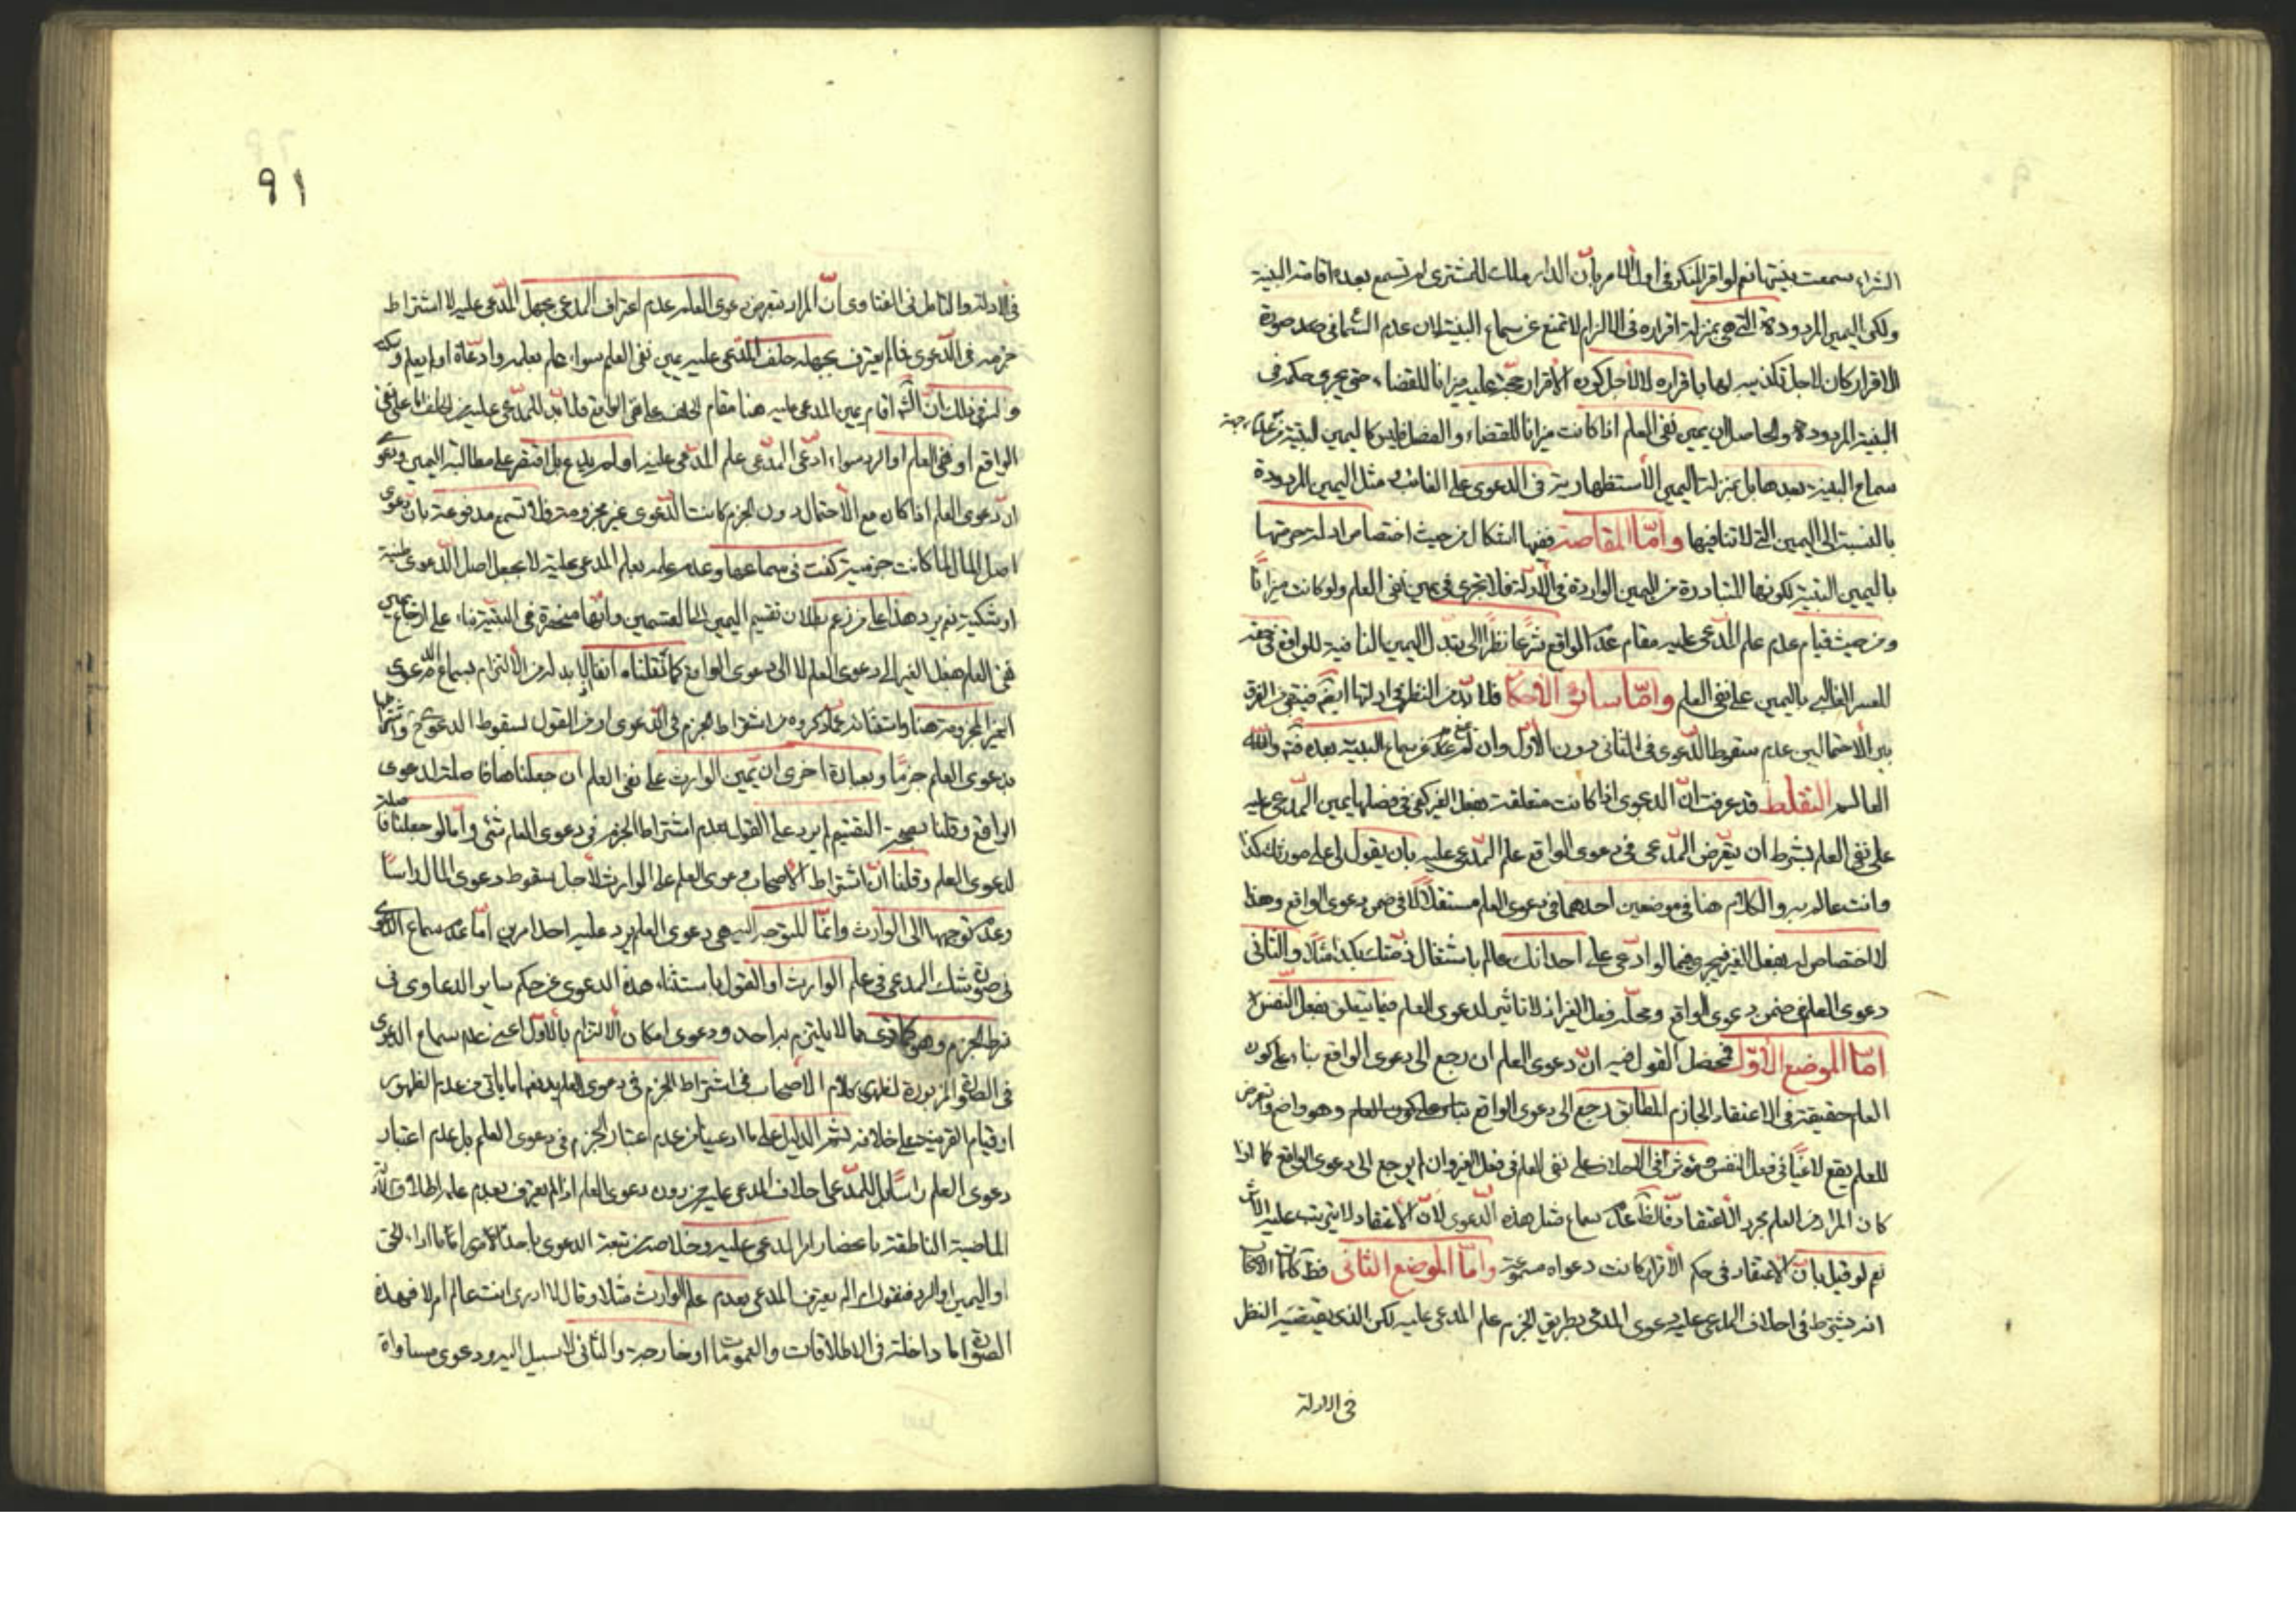 الشراء سمعت بينتها نعم لو اقر المنكر في اول الامر بان الدار ملك للمشترى لم تسمع بعده اقامة البينة
ولكن اليمين المردودة التي هي بمنزلة اقراره في الالزام لا تمنع عن سماع البينة لان عدم السماع في صورة
الاقرار كان لاجل تكذيبه لها باقراره لا لاجل كون الاقرار حجة عليه ميزانا للقضاء حتى يجرى حكمه في
البينة المردودة والحاصل ان يمين نفى العلم اذا كانت ميزانا للقضاء والفصل فليس كاليمين البتية من جهة
سماع البينة بعدها بل بمنزلة اليمين الاستظهارية في الدعوى على الغائب مثل اليمين المردودة
بالنسبة الى اليمين التي لا تنافيها وامّا المقاصة ففيها اشكال من حيث اختصاص ادلة حرمتها
باليمين البتية لكونها المتبادرة من اليمين الواردة في الادلة فلا تجرى في يمين نفى العلم ولو كانت ميزانًا
ومن حيث قيام عدم علم المدّعى عليه مقام عدم الواقع شرعًا نظرًا الى تبدل اليمين النافية للواقع في حقه
للعسر الغالبي باليمين على نفى العلم وامّا سائر الاحكام فلا بدّ من النظر في ادلتها ايضا فتبقى من الفرق
بين الاحتمالين عدم سقوط الدّعوى في الثانى دون الاول وان سماع البينة بعده والله
العالم التقاط قد عرفت انّ الدعوى اذا كانت متعلقة بفعل الغير كفى في فصلها يمين المدّعى عليه
على نفى العلم بشرط ان يتعرض المدّعى في دعوى الواقع علم المدّعى عليه بان يقول لى على مورثك كذا
وانت عالم به والكلام هنا في موضعين احدهما في دعوى العلم مستقلا لا في ضمن دعوى الواقع وهذا
لا اختصاص له بفعل الغير فيجرى فيما لو ادّعى على احد انك عالم باشتغال ذمتك بكذا مثلا والثانى
دعوى العلم في ضمن دعوى الواقع ومحلّه فعل الغير اذ لا تاثير لدعوى العلم فيما يتعلق بفعل النفس
امّا الموضع الاوّل فمحصل القول فيه انّ دعوى العلم ان رجع الى دعوى الواقع بناء على كون
العلم حقيقة في الاعتقاد الجازم المطابق رجع الى دعوى الواقع بناء على كون العلم وهو واضح وتعرض
للعلم يقع لاغيًا في فعل النفس ومؤثرا في الاحلاف على نفى العلم في فعل الغير وان لم يرجع الى دعوى الواقع كما اذا
كان المراد من العلم مجرد الاعتقاد فالظ عدم سماع مثل هذه الدّعوى لانّ الاعتقاد لا يترتب عليه الاثر
نعم لو قيل بانّ الاعتقاد في حكم الاقرار كانت دعواه مسموعة وامّا الموضع الثانى فظ كلمات الاصحاب
انه يشترط في احلاف المدعى عليه دعوى المدعى بطريق الجزم علم المدعى عليه لكن الذى يقتضيه النظر
في الادلة
٩١
في الادلة والتامل في الفتاوى انّ المراد بتعرض دعوى العلم عدم اعتراف المدعى بجهل المدّعى عليه لا اشتراط
جزمه في الدّعوى فما لم يعترف بجهله حلف المدّعى عليه يمين نفى العلم سواء علم بعلمه وادّعاه او لم يعلم
في ذلك انّ الش اقام يمين المدعى عليه هنا مقام الحلف على نفى الواقع فلا بدّ للمدّعى عليه من الحلف اما على نفى
الواقع او نفى العلم او الرد سواء ادّعى المدّعى علم المدّعى عليه او لم يدّع بل اقتصر على مطالبة اليمين ودعوى
ان دعوى العلم اذا كان مع الاحتمال دون الجزم كانت الدّعوى غير مجزومة فلا تسمع مدفوعة بان دعوى
اصل المال لما كانت جزمية كفت في سماعها وعدم علمه بعلم المدعى عليه لا يجعل اصل الدّعوى ظنية
او شكية نعم يرد هذا على من زعم بطلان تقسيم اليمين الى القسمين وانّها منحصرة في البتية بناء على ارجاع يمين
نفى العلم بفعل الغير الى دعوى العلم لا الى دعوى الواقع كما نقلناه آنفا لا بد له من الالتزام بسماع الدّعوى
الغير المجزومة هنا واستثنائه عما ذكروه من اشتراط الجزم في الدّعوى او من القول بسقوط الدعوى
بدعوى العلم جزمًا وبعبارة اخرى ان يمين الوارث على نفى العلم ان جعلناها فاصلة لدعوى
الواقع وقلنا بصحة التقسيم لم يرد على القول بعدم اشتراط الجزم في دعوى العلم شئ وامّا لو جعلناها فاصلة
لدعوى العلم وقلنا انّ اشتراط الاصحاب دعوى العلم على الوارث لاجل سقوط دعوى المال راسًا
وعدم توجهها الى الوارث وانما المتوجه اليه هي دعوى العلم يرد عليه احد امرين امّا عدم سماع الدعوى
في صورة شك المدعى في علم الوارث او القول باستثناء هذه الدعوى عن حكم ساير الدعاوى في
شرط الجزم وهو كما ترى مما لا يلتزم به احد ودعوى امكان الالتزام بالاوّل اعنى عدم سماع الدعوى
في الصورة المزبورة لظهور كلام الاصحاب في اشتراط الجزم في دعوى العلم يدفعها ما ياتى من عدم الظهور
او قيام القرينة على خلافه ثم الدليل على ما ادعينا من عدم اعتبار الجزم في دعوى العلم بل عدم اعتبار
دعوى العلم راسًا بل للمدّعى احلاف المدعى عليه من دون دعوى العلم اذا لم يعترف بعدم علمه اطلاق الادلة
الماضية الناطقة باحضار المدعى عليه وخلاصه من تبعة الدعوى باحد الامور امّا باداء الحق
او اليمين او الرد فنقول اذا لم يعترف المدعى بعدم علم الوارث مثلا وقال لا ادرى انت عالم ام لا فهذه
الصورة اما داخلة في الاطلاقات والعمومات او خارجة والثانى لا سبيل اليه ودعوى مساواة